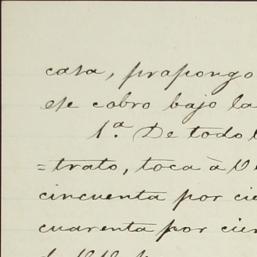 casa, propongo
este cobro bajo la
1ª. De todo
=trato, toca à
cincuenta por cie
cuarenta por cien